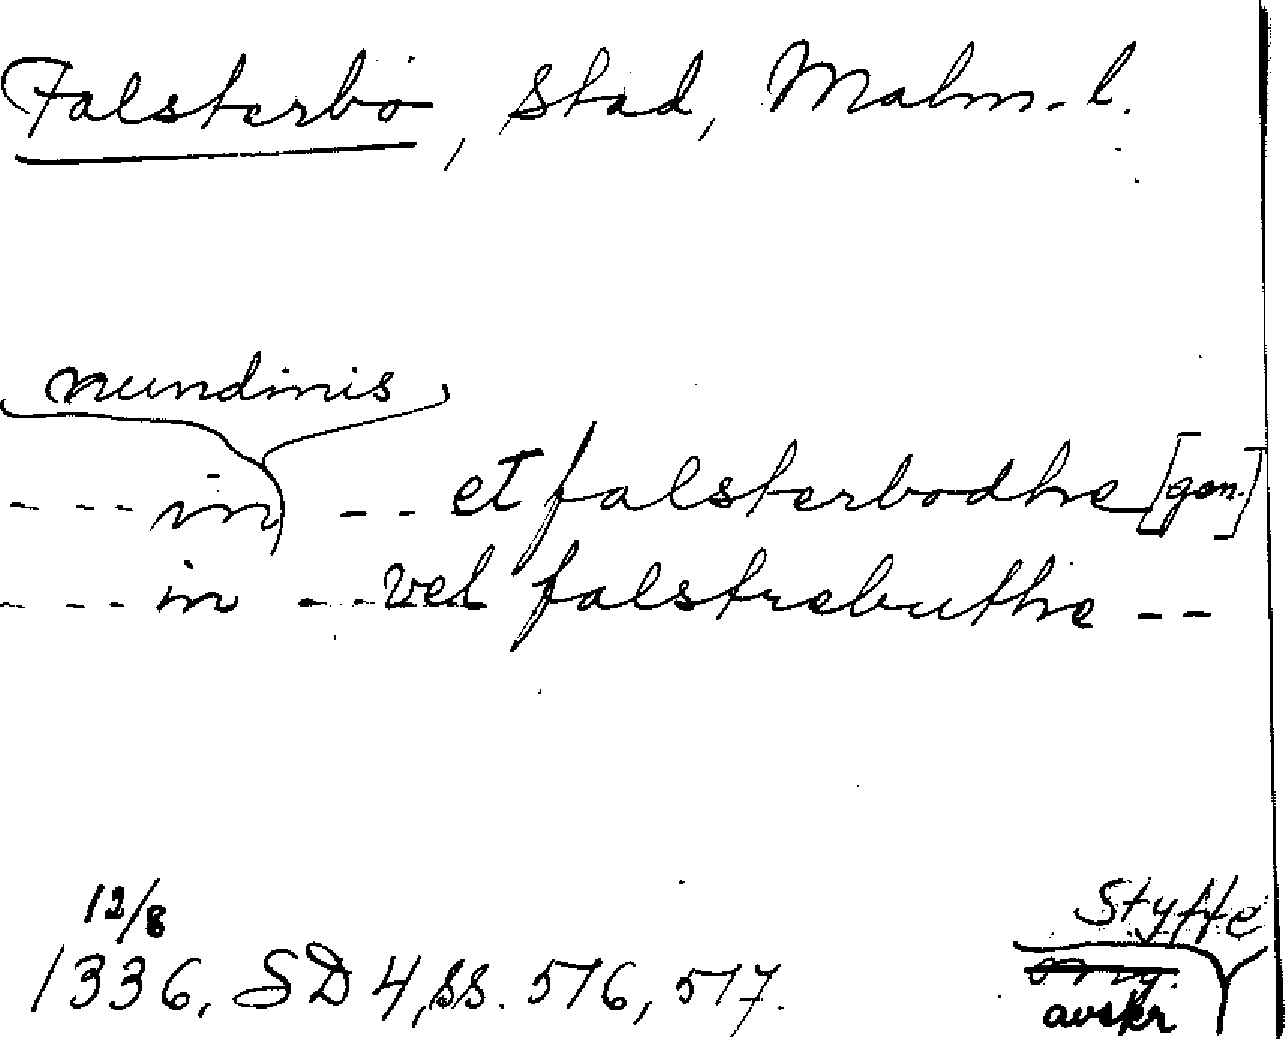 Falsterbo, stad, Malm. l.
nundinis
--- in -- et falsterbodhe [gen.]
--- in -- vel falstrebuthe --
12/8
1336, SD 4, ss. 516, 517.
Styffe
avskr